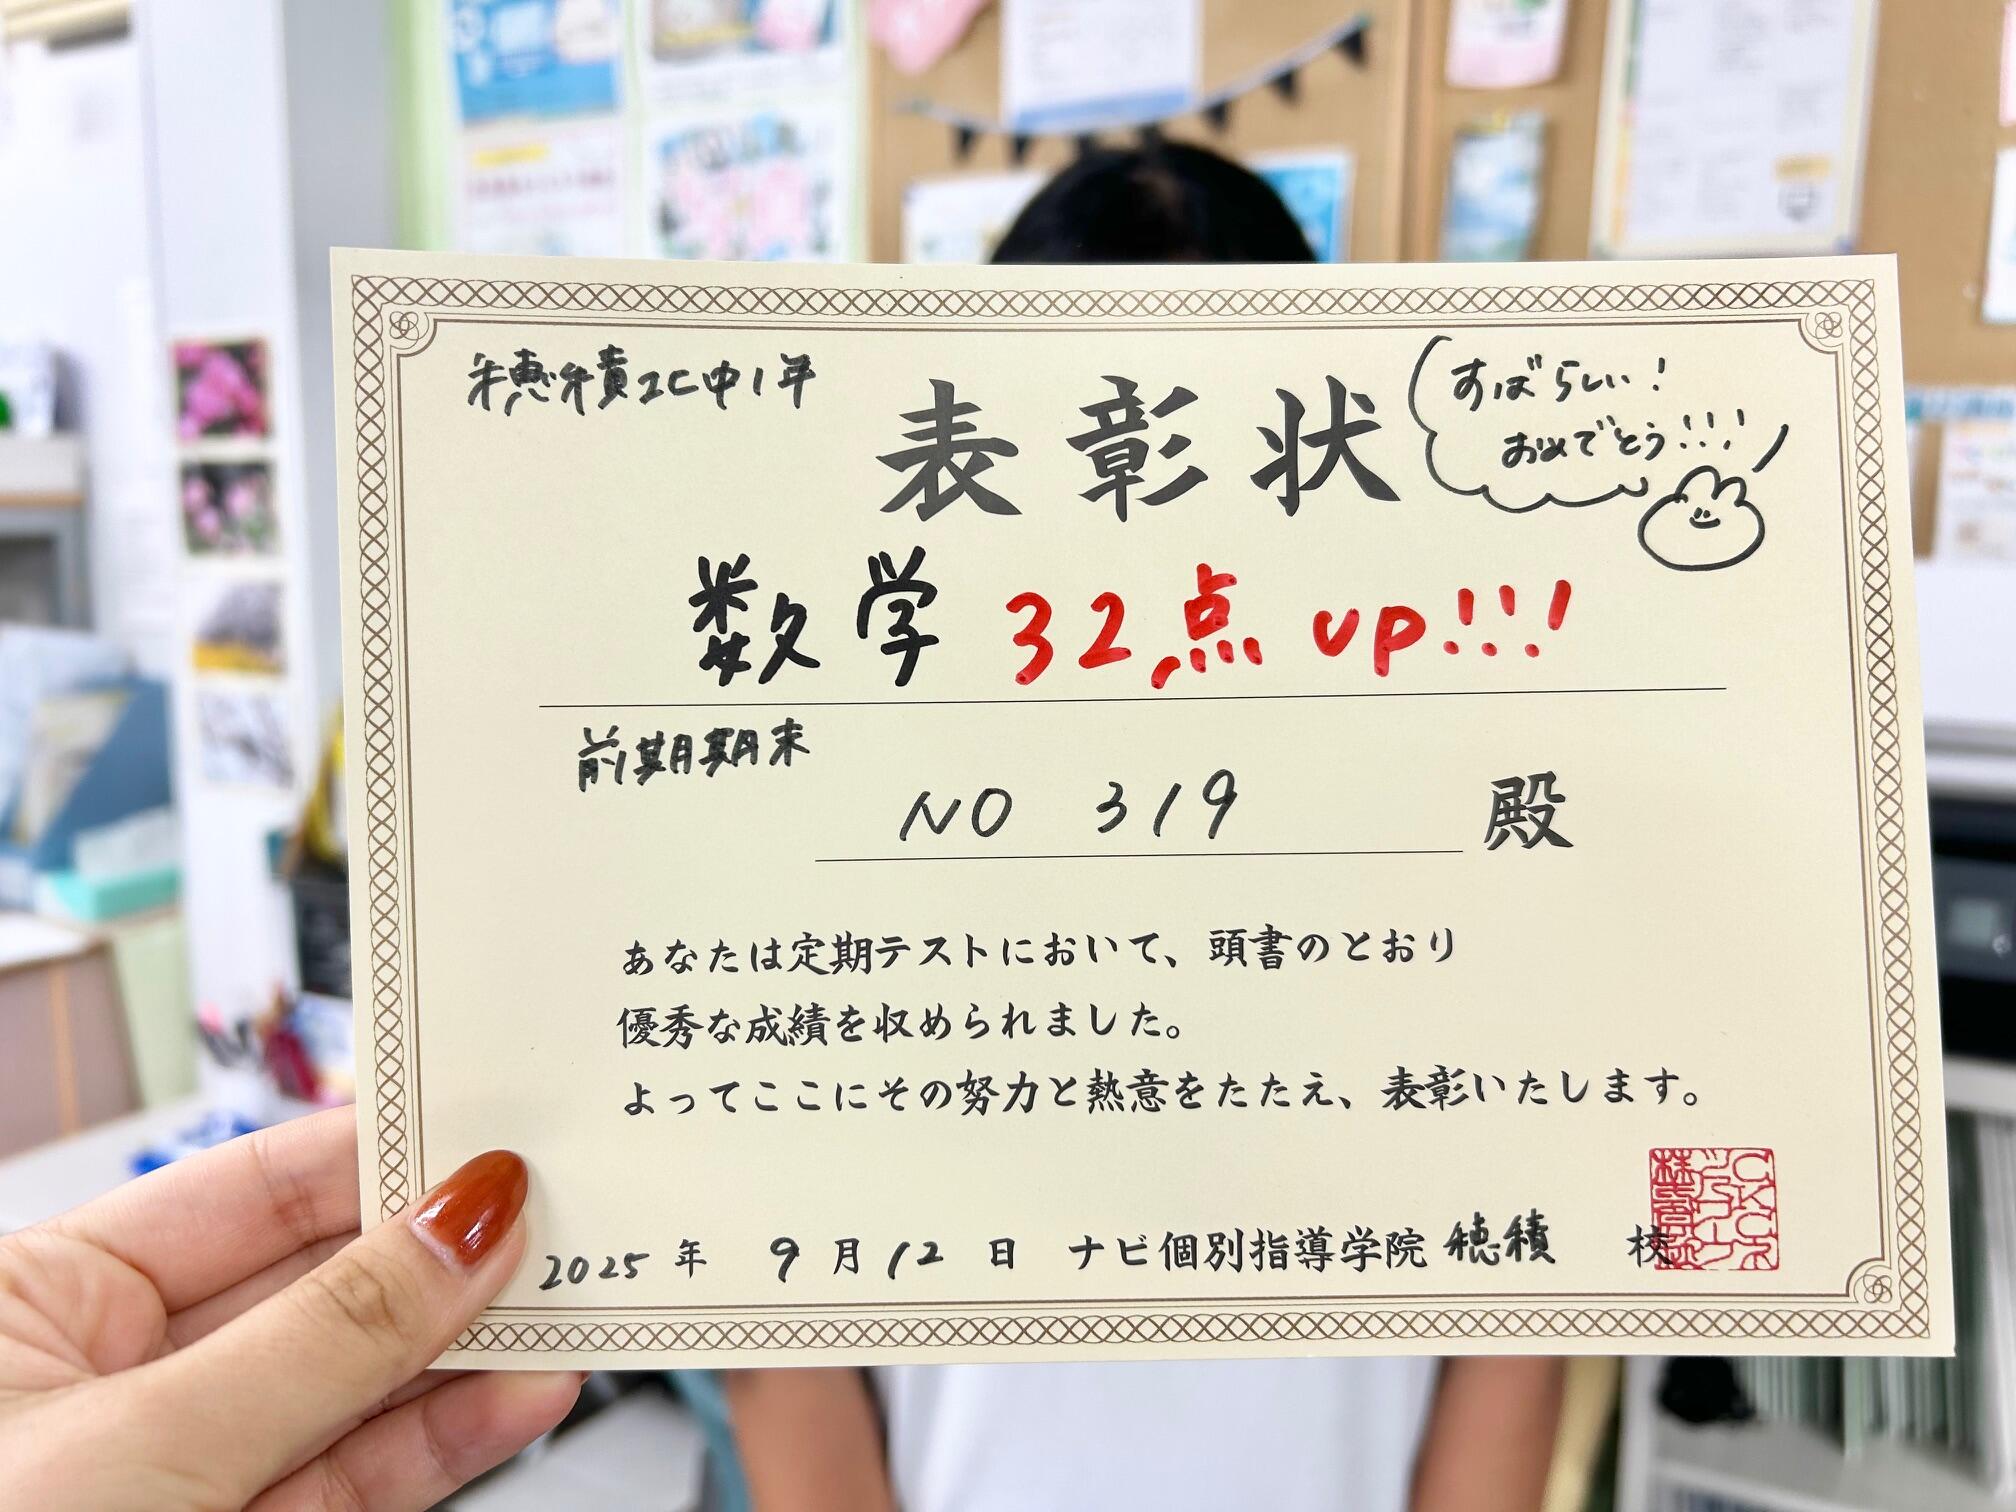 穂積北中1年
表彰状
すばらしい!
おめでとう!!!
数学 32点 up!!!
前期期末
NO 319 殿
あなたは定期テストにおいて、頭書のとおり
優秀な成績を収められました。
よってここにその努力と熱意をたたえ、表彰いたします。
2025年 9月12日 ナビ個別指導学院 穂積 校